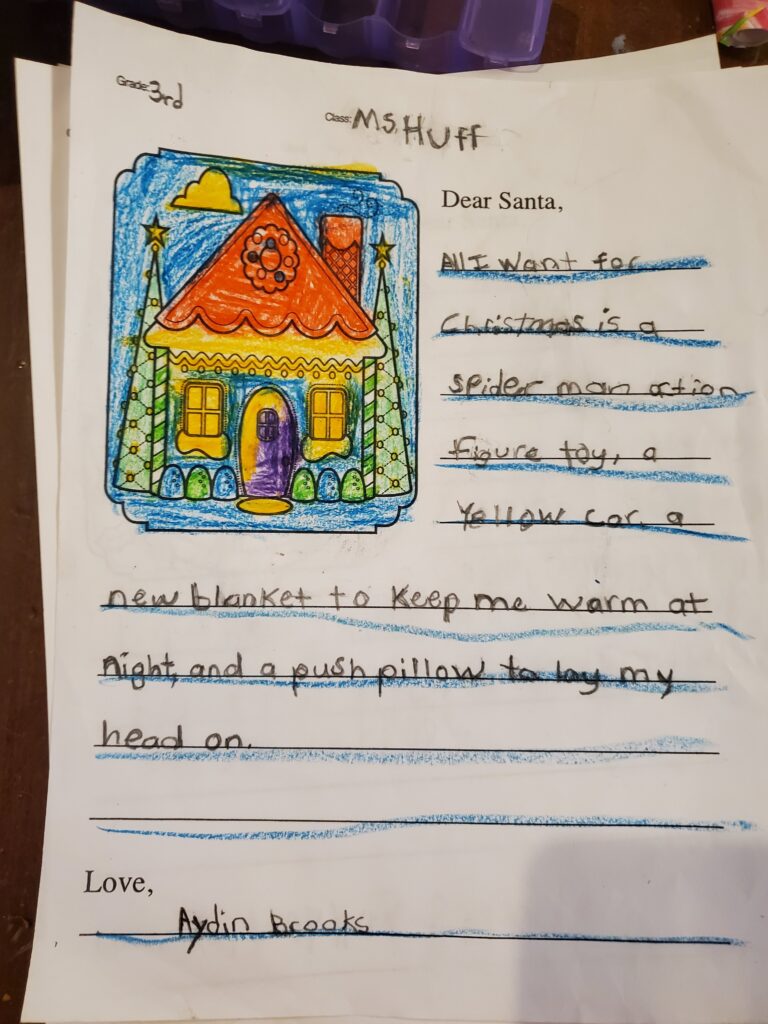 Grade: 3rd
Class: Ms. Huff
Dear Santa,
All I want for
Christmas is a
spider man action
figure toy, a
Yellow car. a
new blanket to keep me warm at
night, and a push pillow to lay my
head on.
Love,
Aydin Brooks